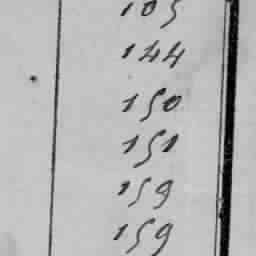 105
144
150
151
159
159